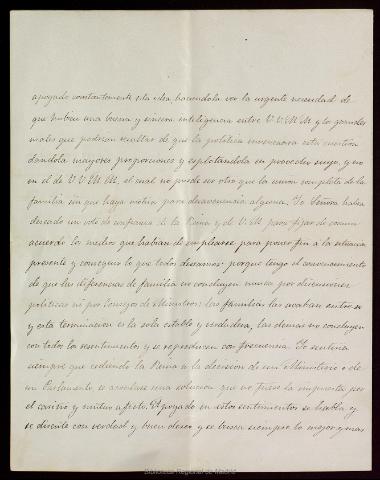 apoyado constantemente esta idea, haciendola ver la urgente necesidad de
que hubiera una buena y sincera inteligencia entre V.V.M.M. y los grandes
males que podrian resultar de que la politica envenenara esta cuestion
dandola mayores proporciones y esplotandola en provecho suyo, y no
en el de V.V.M.M, el cual no puede ser otro que la union completa de la
familia sin que haya motivo para desavenencia alguna. Yo Señora habia
deseado un voto de confianza de la Reina y de V.M. para fijar de comun
acuerdo los medios que habian de emplearse para poner fin a la situacion
presente y conseguir lo que todos deseamos: porque tengo el convencimiento
de que las diferencias de familia no concluyen nunca por discusiones
politicas ni por Consejos de Ministros: las familias las acaban entre si
y esta terminacion es la sola estable y verdadera, las demas no concluyen
con todos los resentimientos y se reproducen con frecuencia. Yo sentiria
siempre que cediendo la Reina a la decision de un Ministerio o de
un Parlamento, se acordase una solucion que no fuese la impuesta por
el cariño y mutuo afecto. apoyado en estos sentimientos se habla y
se discute con verdad y buen deseo, y se busca siempre lo mejor y mas
Biblioteca Regional de Madrid